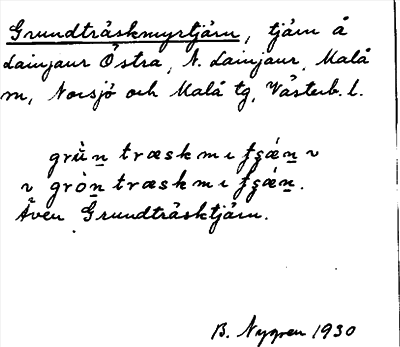 Grundträskmyrtjärn, tjärn å
Lainjaur Östra, N. Lainjaur, Malå
m, Norsjö och Malå tg, Västerb. l.
grùn̲ træskmı ʃɕǽn̲ v
v gròn̲træskmı ʃɕǽn̲.
Även Grundträsktjärn.
B. Nygren 1930